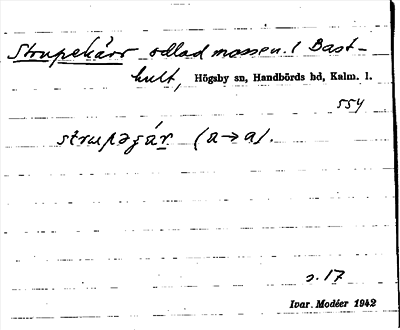 Strupekärr odlad mossen. / Bast-
hult, Högsby sn, Handbörds hd, Kalm. l.
SSY
strupəgár (a→a).
s. 17
Ivar. Modéer 1942